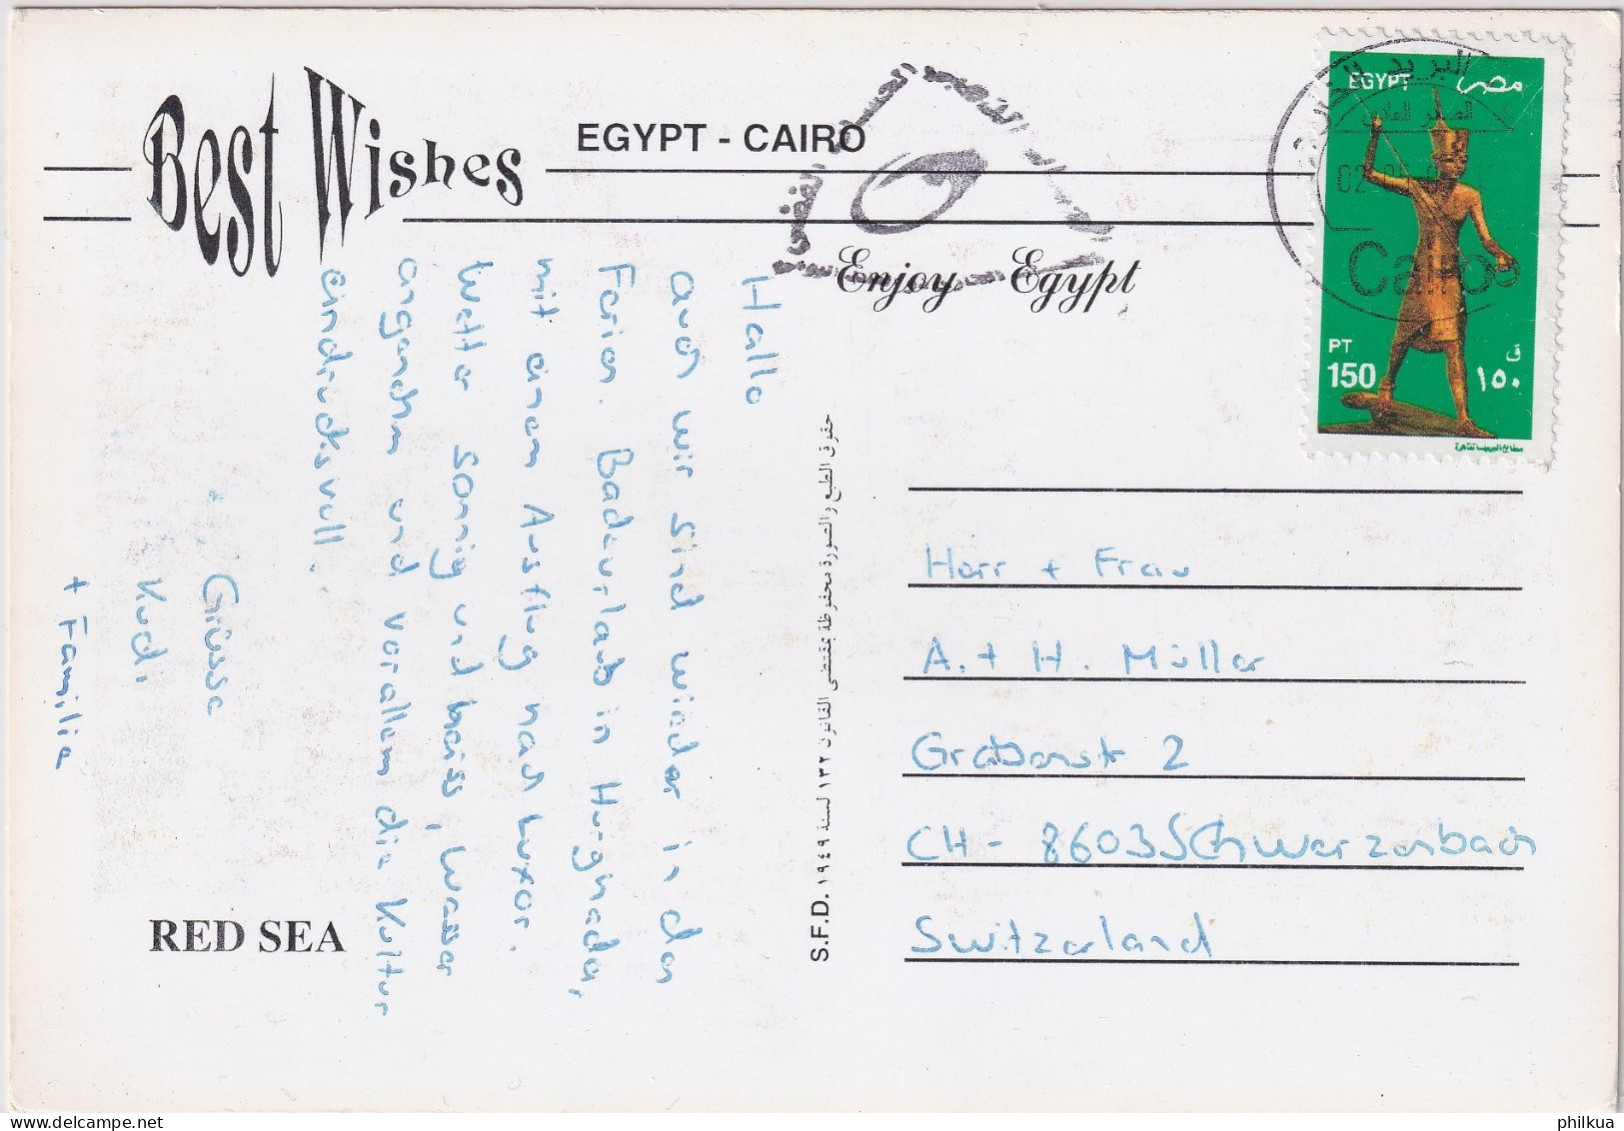 Best Wishes
EGYPT - CAIRO
Enjoy Egypt
EGYPT مصر
البريد
Cairo
PT
150
ق
١٥٠
Hallo
auch wir sind wieder in den
Ferien. Badeurlaub in Hurghada,
mit einem Ausflug nach Luxor.
Wetter sonnig und heiss, Wasser
angenehm und vorallem die Kultur
eindrucksvoll.
Grüsse
Rudi
+ Familie
RED SEA
S.F.D. حقوق الطبع والصورة محفوظة بمقتضى القانون ١٣٢ لسنة ١٩٤٩
Herr + Frau
A. + H. Müller
Grabenstr 2
CH - 8603 Schwerzenbach
Switzerland
philkua